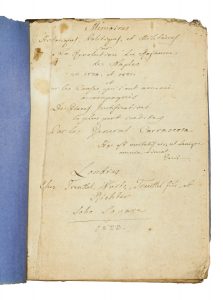 Mémoires
Historiques, Politiques, et Militaires
sur
La Révolution du Royaume
des Naples
en 1820, et 1821
et
sur les Causes qui l'ont amenée
accompagnées
Des Pièces Justificatives
la plus part inédites
Par les General Carrascosa
Londres
Chez Treuttel, Würtz, Treuttel fils, et
Richter
1823